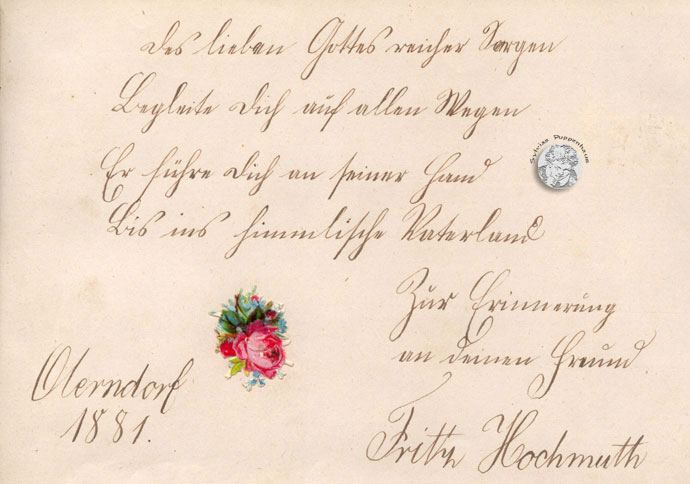 Des lieben Gottes reicher Segen
Begleite Dich auf allen Wegen
Er führe Dich an seiner Hand
Bis ins himmlische Vaterland
Zur Erinnerung
an deinen Freund
Fritz Hochmuth
Oberndorf
1881.
Sylvias Puppenhaus